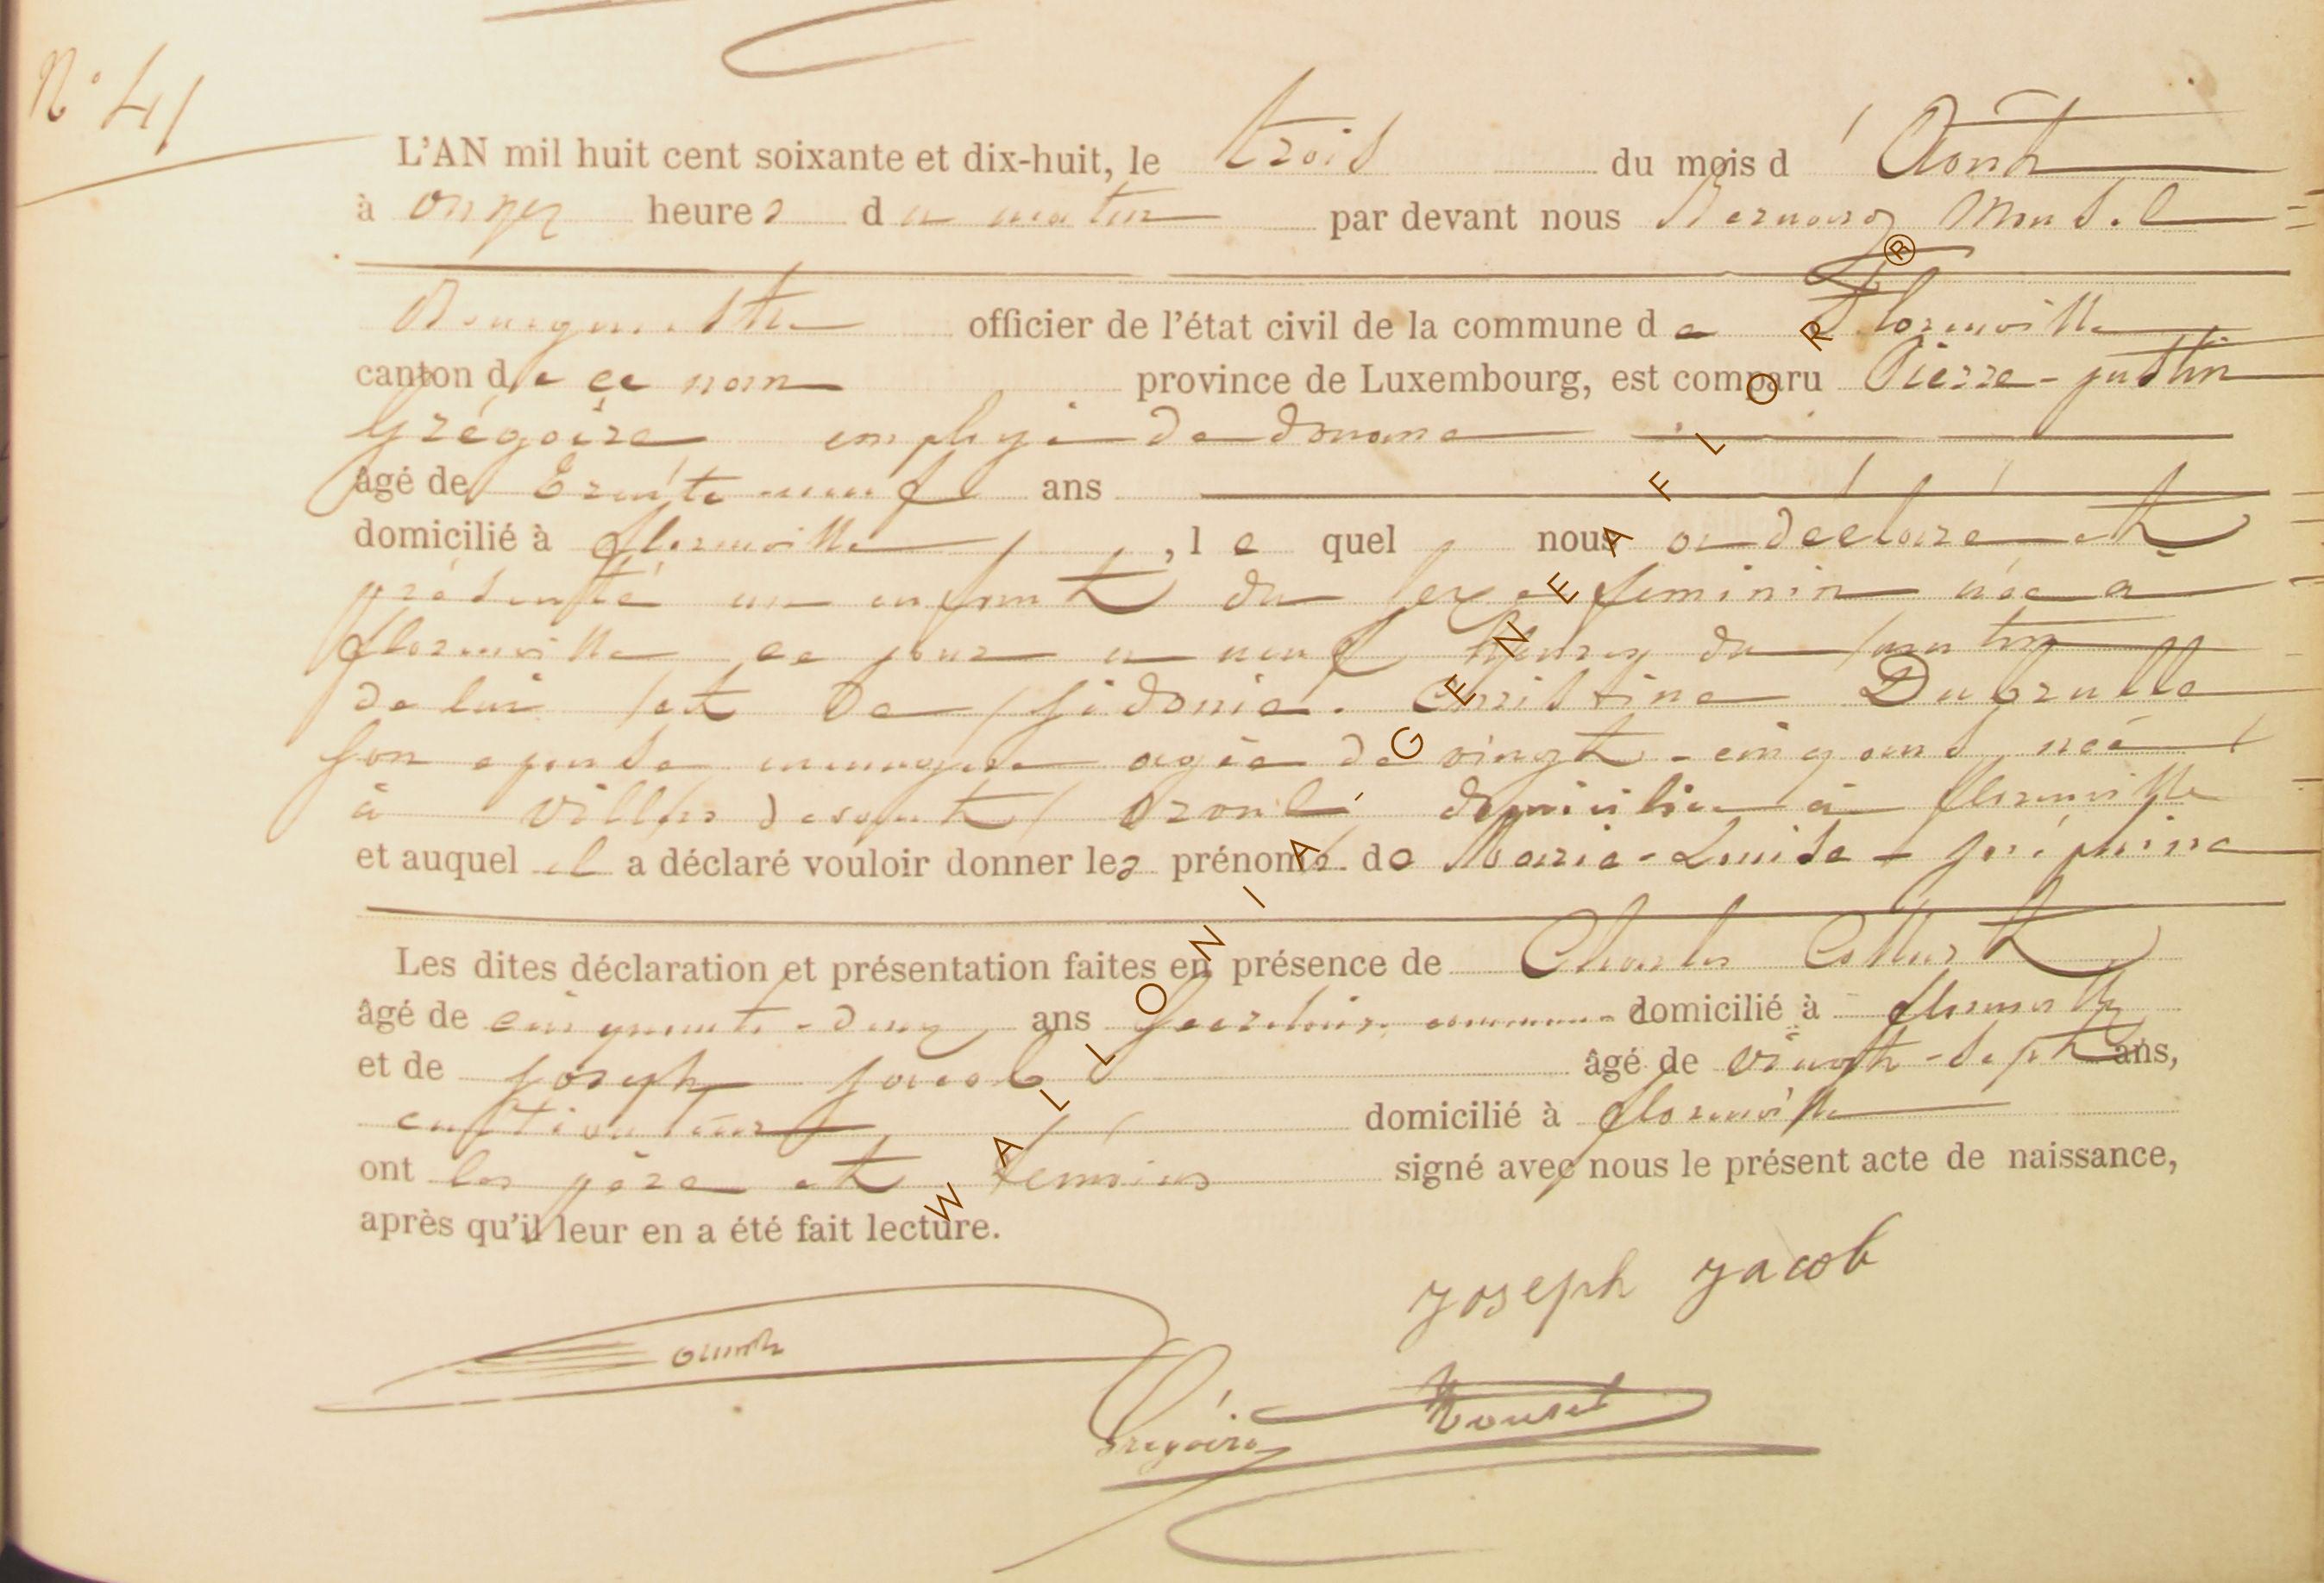 N° 41
L'AN mil huit cent soixante et dix-huit, le trois du mois d' Aout
à onzez heures du matin par devant nous Bernard Mousel
Bourgmestre officier de l'état civil de la commune de Florenville
canton de ce nom province de Luxembourg, est comparu Pierre-justin
Grégoire employé de douane
âgé de trente neuf ans
domicilié à florenville, le quel nous a déclaré et
présenté un enfant du sexe feminin née a
florenville ce jour a neuf heures du matin
de lui et de Sidonie. Christine Dubrulle
son epouse menagere agée de vingt-cinq ans née
à Villers devant orval domiciliée à florenville
et auquel il a déclaré vouloir donner les prénoms de Marie-Louise-joséphine
Les dites déclaration et présentation faites en présence de Charles Collart
âgé de cinquante-deux ans Secrétaire communal domicilié à florenville
et de joseph jacob âgé de vingt-sept ans,
cultivateur domicilié à florenville
ont les père et temoins signé avec nous le présent acte de naissance,
après qu'il leur en a été fait lecture.
joseph jacob
Grégoire
WALLONIA GENEAFLOR ®